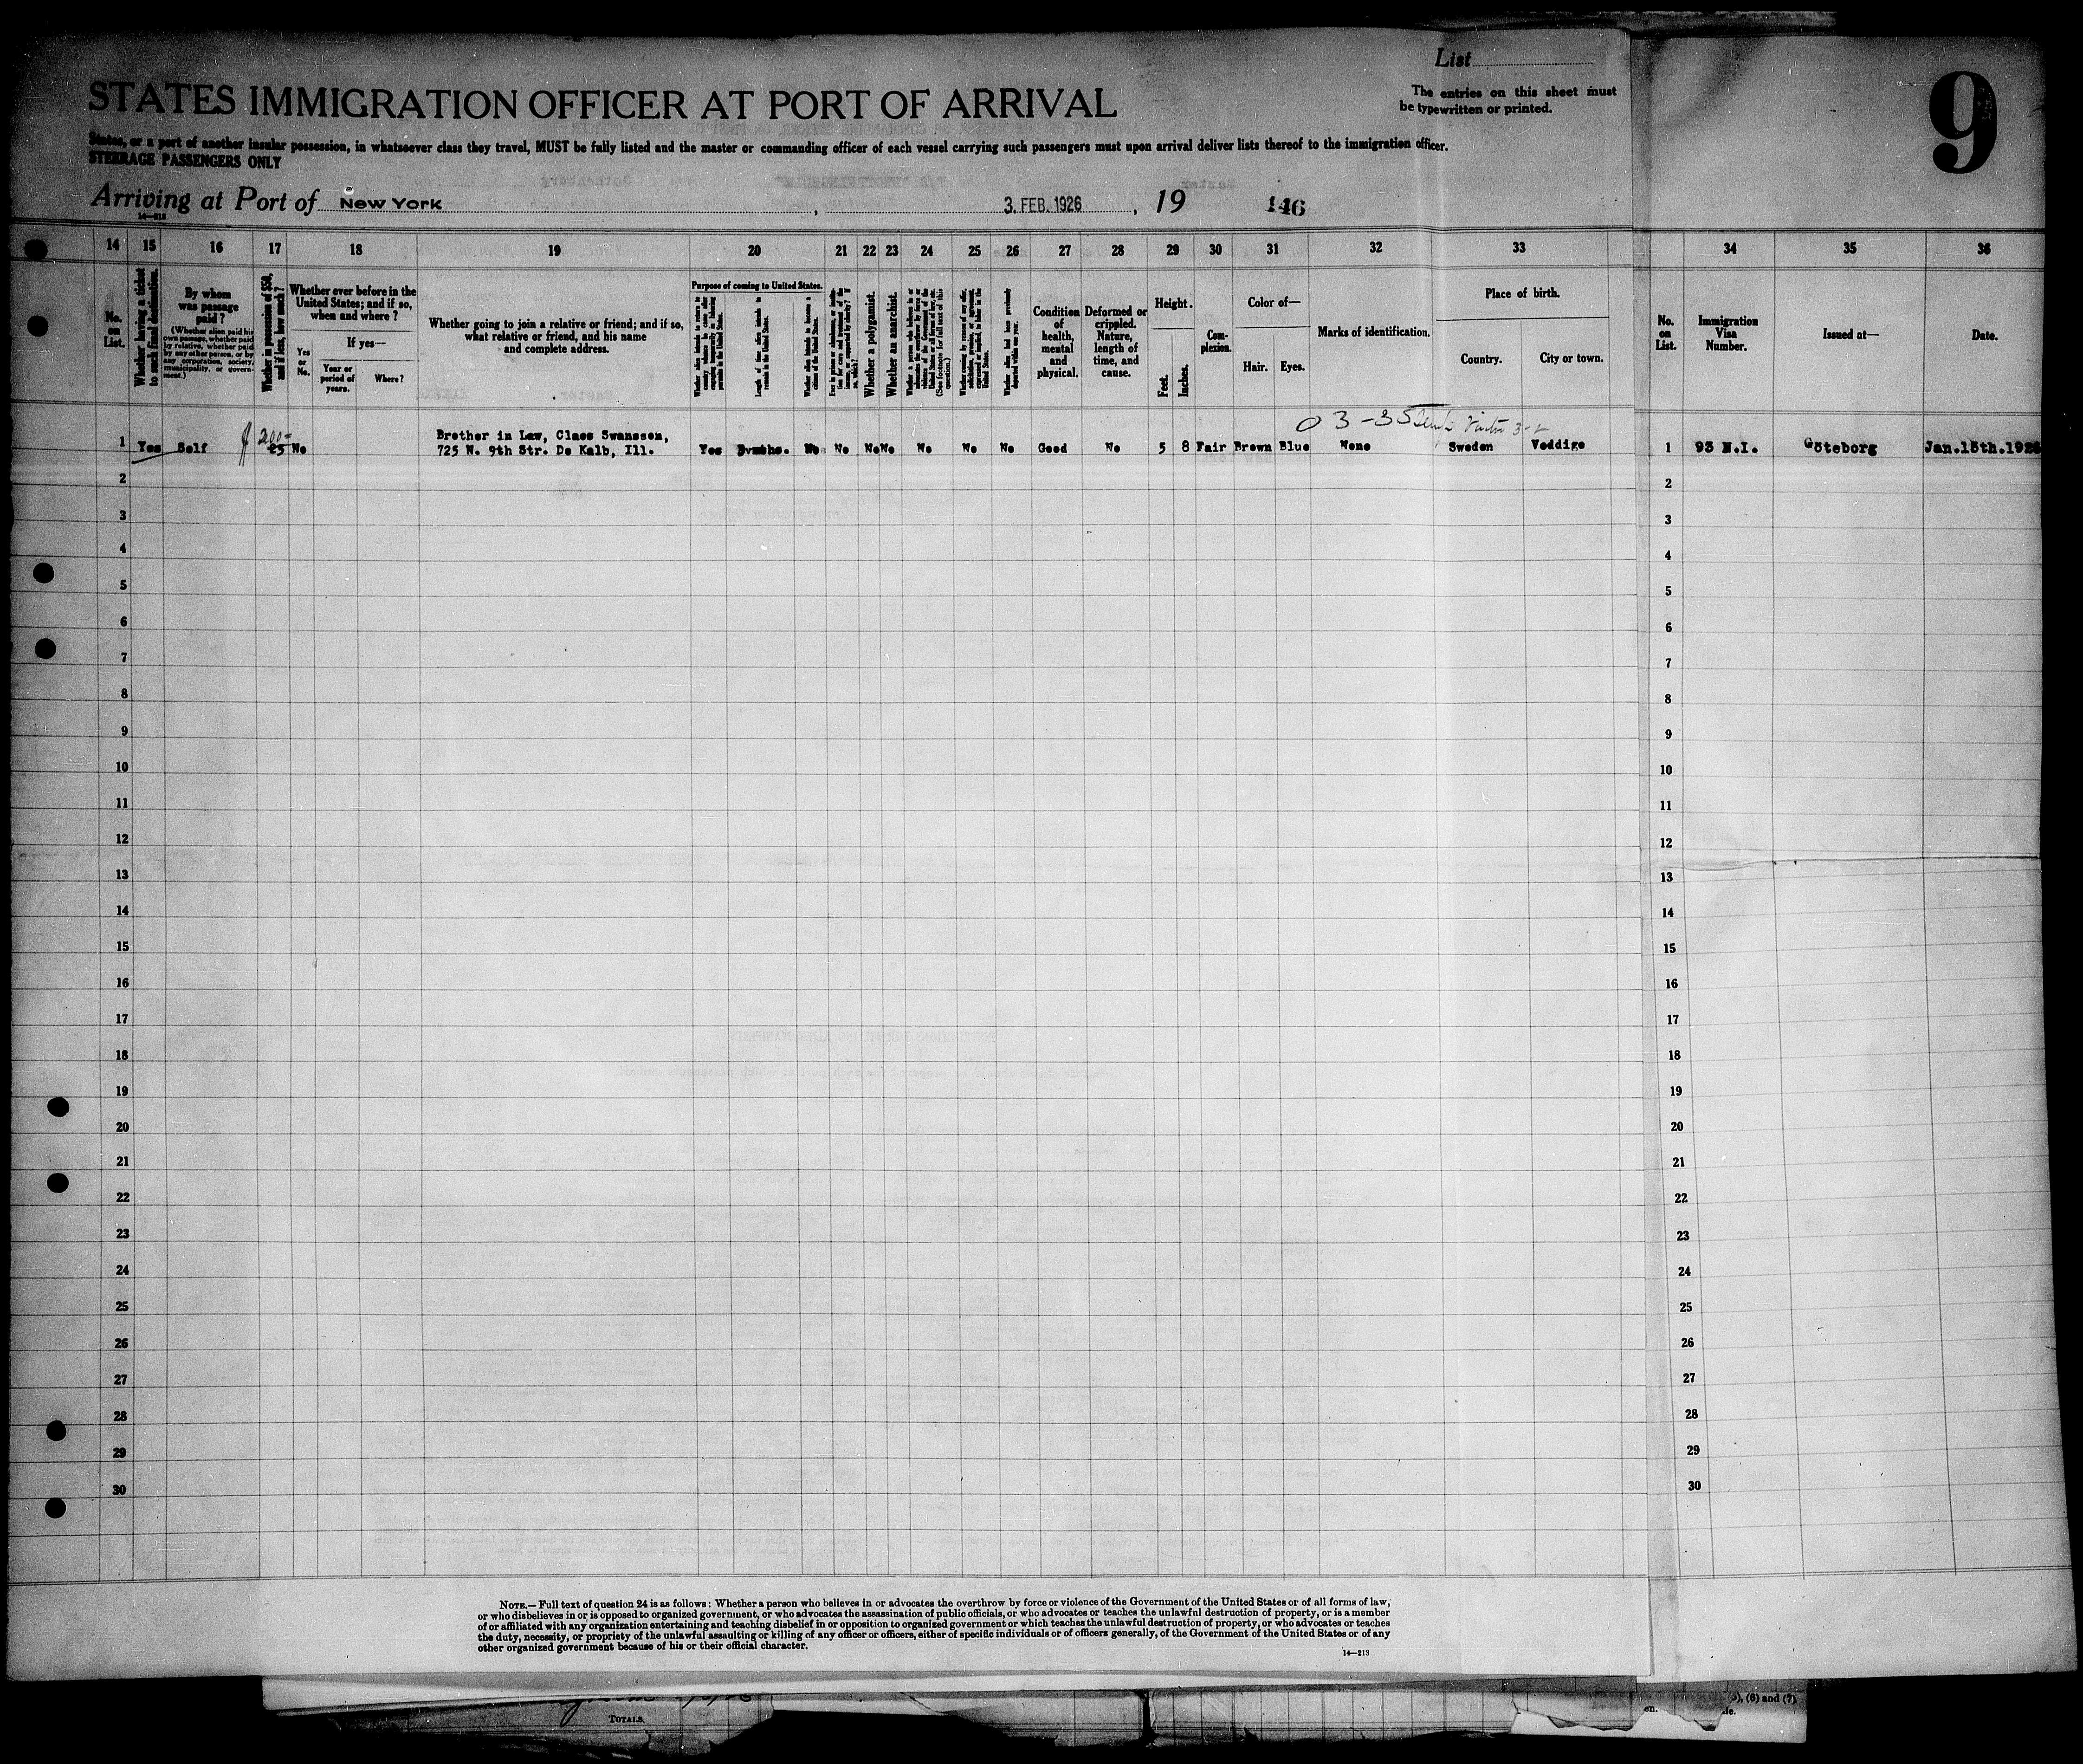 List
STATES IMMIGRATION OFFICER AT PORT OF ARRIVAL
The entries on this sheet must
be typewritten or printed.
9
States, or a port of another insular possession, in whatsoever class they travel, MUST be fully listed and the master or commanding officer of each vessel carrying such passengers must upon arrival deliver lists thereof to the immigration officer.
STEERAGE PASSENGERS ONLY
Arriving at Port of New York, 3. FEB. 1926, 19 146
14 15 16 17 18 19 20 21 22 23 24 25 26 27 28 29 30 31 32 33 34 35 36
No. on List.
Whether having a ticket to such final destination.
By whom was passage paid?
(Whether alien paid his own passage, whether paid by relative, whether paid by any other person, or by any corporation, society, municipality, or government.)
Whether in possession of $50, and if less, how much?
Whether ever before in the United States; and if so, when and where?
Yes or No.
If yes—
Year or period of years.
Where?
Whether going to join a relative or friend; and if so, what relative or friend, and his name and complete address.
Purpose of coming to United States.
Length of time alien intends to remain in the United States.
Whether alien intends to become a citizen of the United States.
Whether a polygamist.
Whether an anarchist.
Condition of health, mental and physical.
Deformed or crippled. Nature, length of time, and cause.
Height.
Feet.
Inches.
Complexion.
Color of—
Hair.
Eyes.
Marks of identification.
Place of birth.
Country.
City or town.
No. on List.
Immigration Visa Number.
Issued at—
Date.
03-35
200-
Brother in Law, Claes Swansson,
1 Yes Self 25 No 725 N. 9th Str. De Kalb, Ill. Yes No No No No No No No Good No 5 8 Fair Brown Blue None Sweden Veddige 1 93 N.I. Göteborg Jan.15th.1926
2 2
3 3
4 4
5 5
6 6
7 7
8 8
9 9
10 10
11 11
12 12
13 13
14 14
15 15
16 16
17 17
18 18
19 19
20 20
21 21
22 22
23 23
24 24
25 25
26 26
27 27
28 28
29 29
30 30
NOTE.—Full text of question 24 is as follows: Whether a person who believes in or advocates the overthrow by force or violence of the Government of the United States or of all forms of law,
or who disbelieves in or is opposed to organized government, or who advocates the assassination of public officials, or who advocates or teaches the unlawful destruction of property, or is a member
of or affiliated with any organization entertaining and teaching disbelief in or opposition to organized government or which teaches the unlawful destruction of property, or who advocates or teaches
the duty, necessity, or propriety of the unlawful assaulting or killing of any officer or officers, either of specific individuals or of officers generally, of the Government of the United States or of any
other organized government because of his or their official character.
14—213
TOTALS.
(6) and (7)